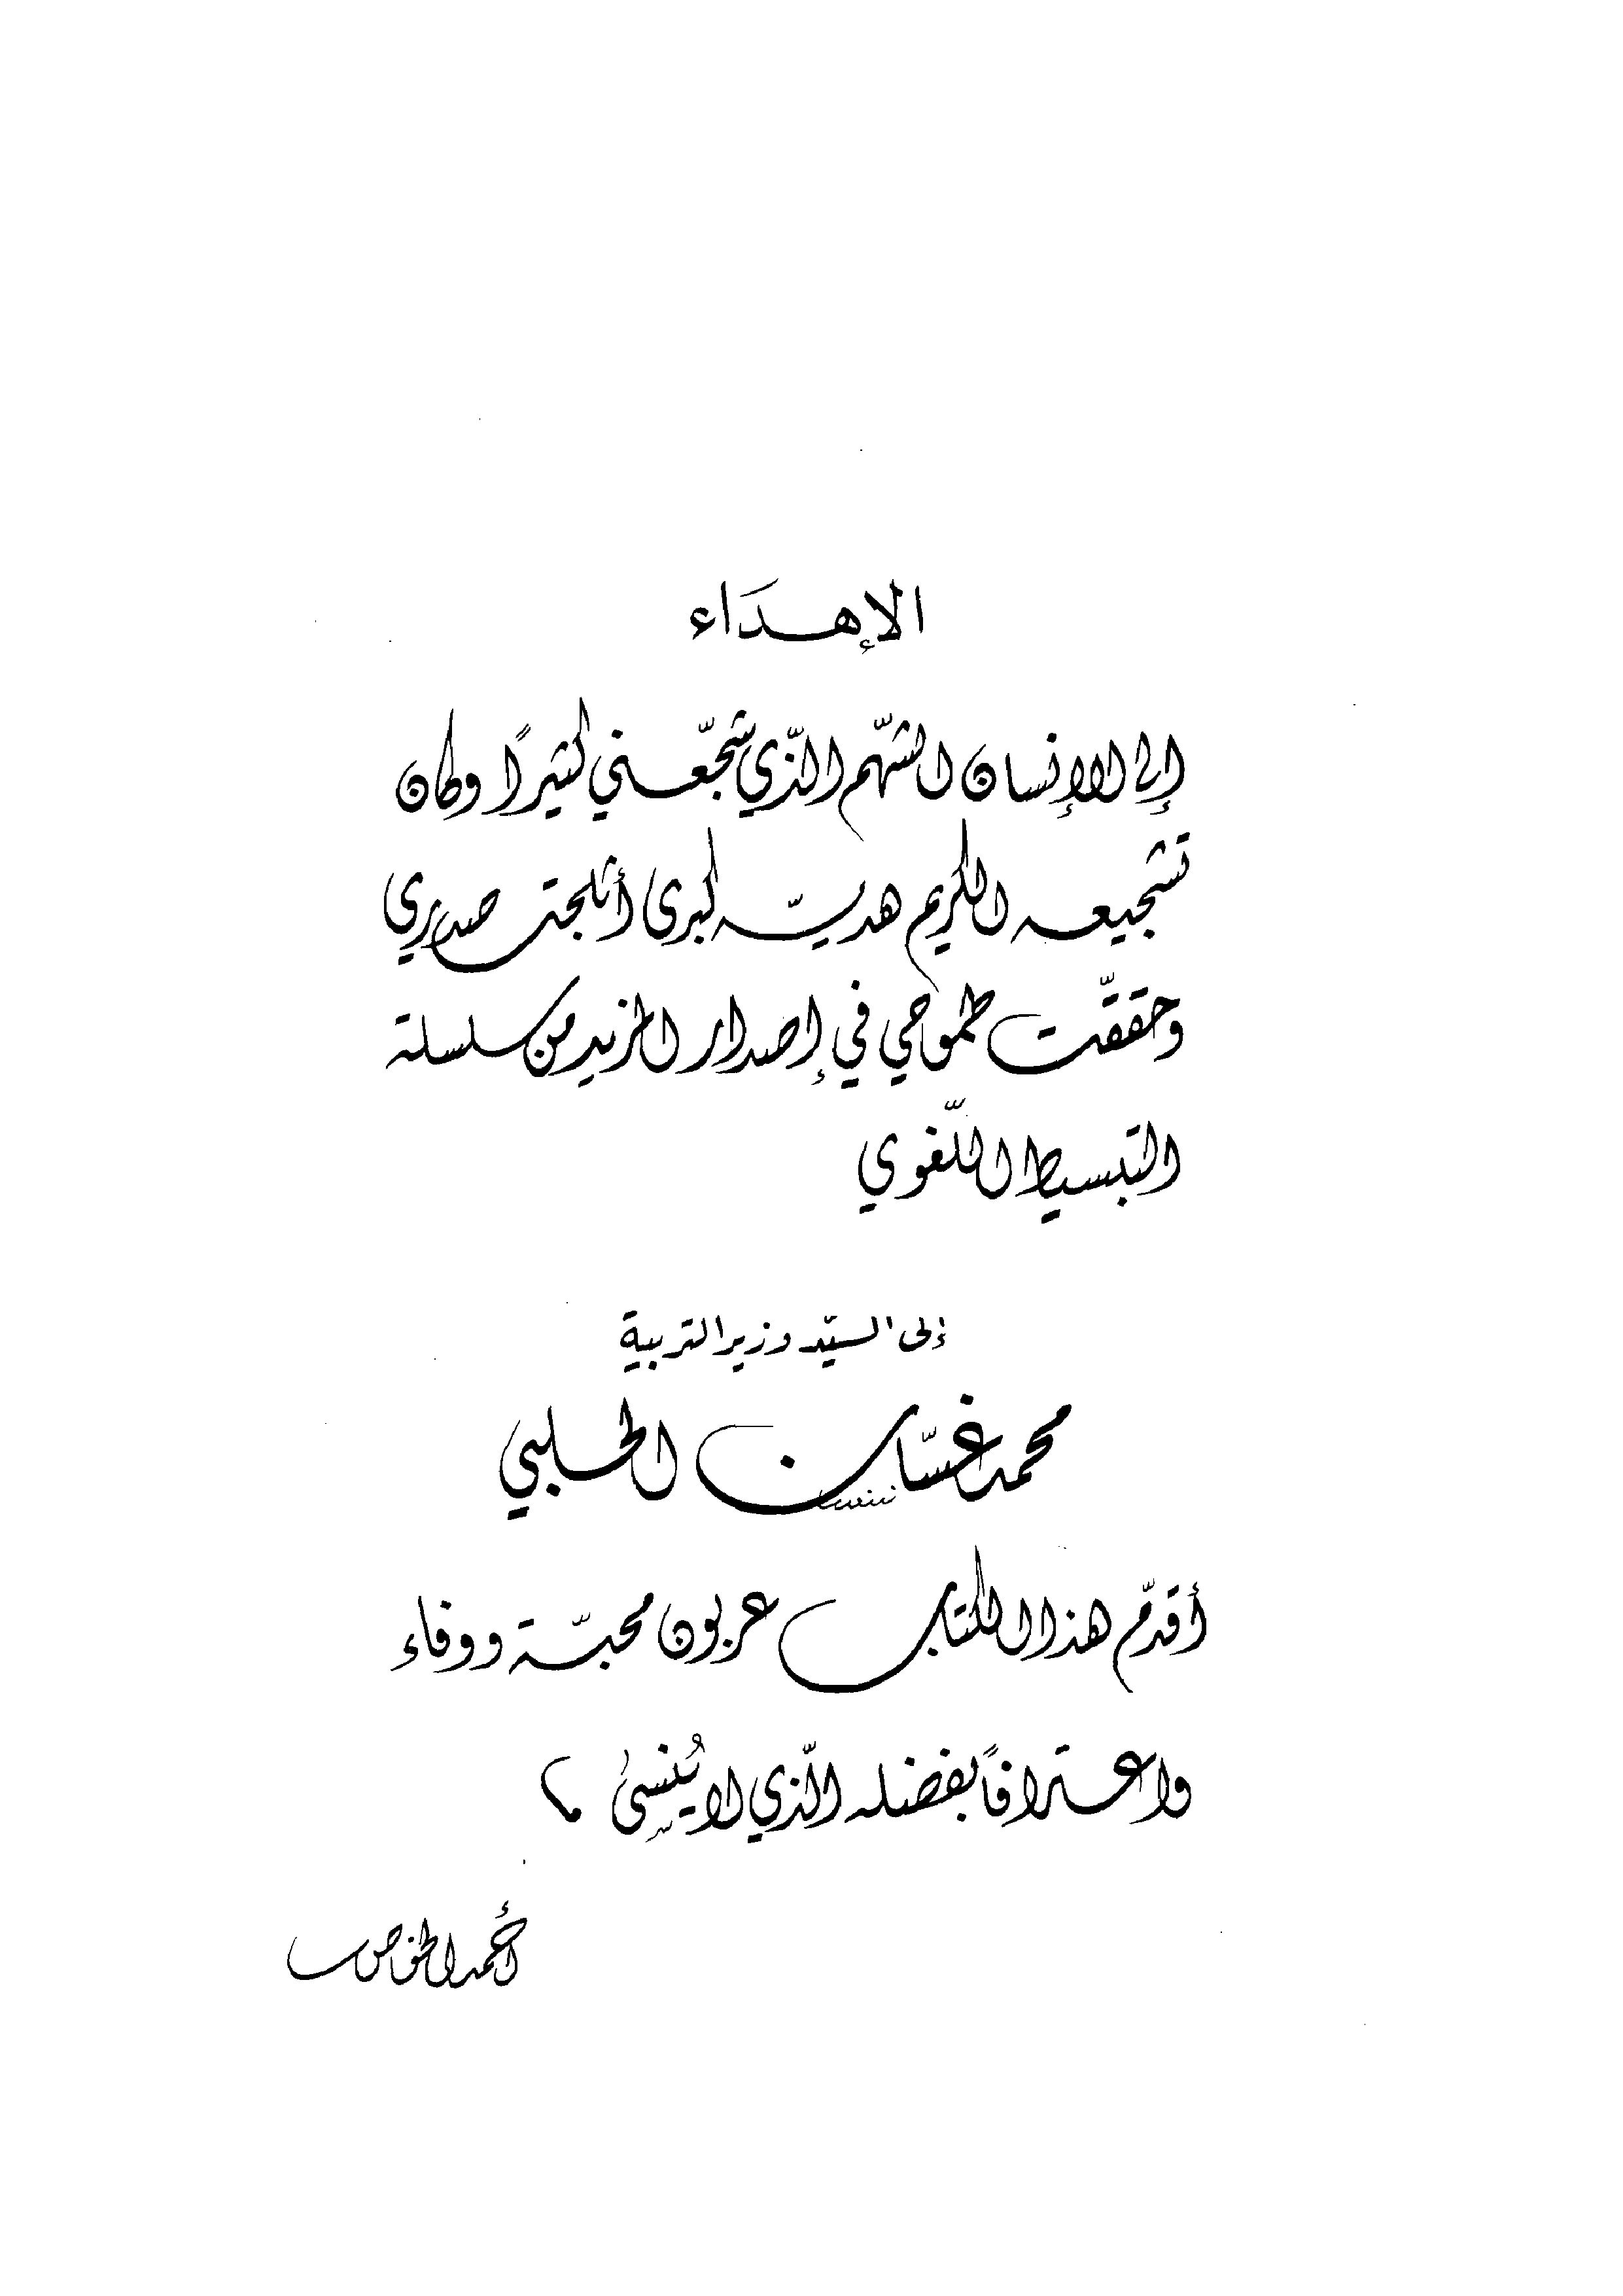 الإهدَاء
إلى الإنسان الشّهم الّذي شجّعني كثيرًا وكان
تشجيعه الكريم هديّة كبرى أثلجت صدري
وحققّت طموحي في إصدار المزيد من سلسلة
التبسيط اللّغوي
إلى السيّد وزير التربية
محمد غسّان الحلبي
أقدّم هذا الكتاب عربون محبّة ووفاء
واعترافًا بفضله الّذي لا يُنسى
أحمد الخوص